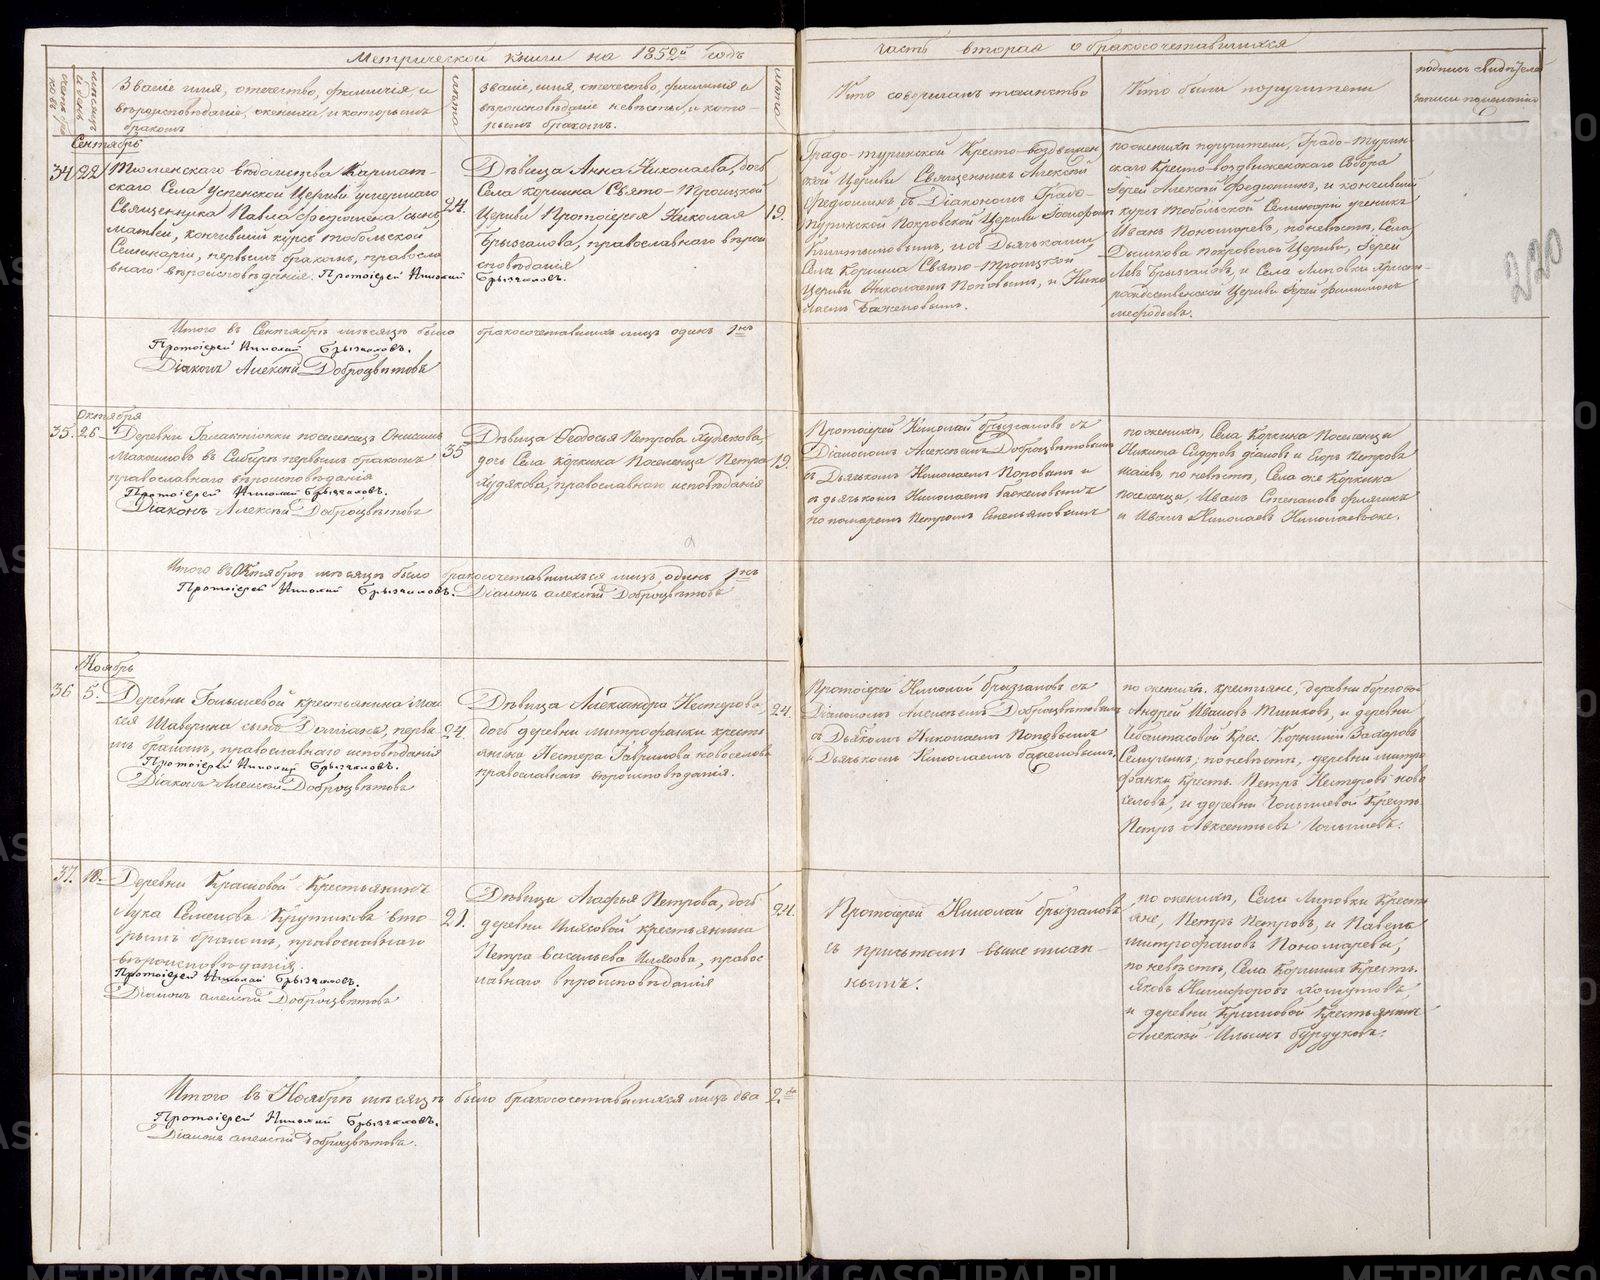 Метрической книги на 1852й годъ
часть вторая о бракосочетавшихся
Званіе имя, отечество, фамилія и
вѣроисповѣданіе, жениха, и которымъ
бракомъ
лѣта
Званіе, имя, отечество, фамилія и
вѣроисповѣданіе невѣсты, и кото-
рымъ бракомъ.
лѣта
Кто совершалъ таинство
Кто были поручители
подпись свидѣтелей
записи по желанію
Сентябрь
34 22
Тюменскаго вѣдомства
скаго Села Успенской Церкви умершаго
Священника Павла Федюшина сынъ
Матвей, кончившій курсъ тобольской
Семинаріи, первымъ бракомъ, правосла
внаго вѣроисповѣданія. Протоіерей Николай
24.
Дѣвица Анна Николаева, дочь
Села Коркина Свято-Троицкой
Церкви Протоіерея Николая
Брызгалова, православнаго вѣрои
сповѣданія
Брызгаловъ.
19.
Градо-туринской Кресто-воздвижен
ской Церкви Священникъ Алексѣй
Федюшинъ съ Діакономъ Градо-
Туринской Покровской Церкви
и съ Дьячками
Села Коркина Свято-Троицкой
Церкви Николаемъ Поповымъ, и Нико
лаемъ Баженовымъ.
по женихѣ поручители, Градо-Турин
скаго Кресто-воздвиженскаго Собора
Іерей Алексѣй Федюшинъ, и кончившій
курсъ тобольской Семинаріи ученикъ
Иванъ Пономаревъ, по невѣстѣ, Села
Дымкова Покровской Церкви, Іерей
Левъ Брызгаловъ, и Села Липовки Христо-
рождественской Церкви Іерей Филимонъ
Мефодьевъ.
220
Итого въ Сентябрѣ мѣсяцѣ было
бракосочетавшихся лицъ одинъ 1нъ
Протоіерей Николай Брызгаловъ.
Діаконъ Алексѣй Доброцвѣтовъ
Октября
35. 26.
Деревни Галактіонки поселенецъ Онисимъ
Максимовъ въ Сибирѣ первымъ бракомъ
православнаго вѣроисповѣданія
Протоіерей Николай Брызгаловъ.
Діаконъ Алексѣй Доброцвѣтовъ
35
Дѣвица Феодосья Петрова Худякова,
дочь Села Коркина Поселенца Петра
Худякова, православнаго исповѣданія
19.
Протоіерей Николай Брызгаловъ съ
Діакономъ Алексѣемъ Доброцвѣтовымъ
съ Дьячкомъ Николаемъ Поповымъ и
съ дьячкомъ Николаемъ Баженовымъ
пономаремъ Петромъ Емельяновымъ
по женихѣ, Села Коркина Поселенцы
Никита Сидоровъ и Егоръ Петровъ
по невѣстѣ, Села же Коркина
поселенцы, Иванъ Степановъ
и Иванъ Николаевъ Николаевъ же.
Итого въ Октябрѣ мѣсяцѣ было бракосочетавшихся лицъ, одинъ 1нъ
Протоіерей Николай Брызгаловъ. Діаконъ Алексѣй Доброцвѣтовъ
Ноябрь
36 5.
Деревни Голышевой крестьянина Мои
сея Шаверина сынъ Даміанъ, первы
мъ бракомъ, православнаго исповѣданія
Протоіерей Николай Брызгаловъ.
Діаконъ Алексѣй Доброцвѣтовъ
24.
Дѣвица Александра Нестерова,
дочь деревни митрофанки кресть
янина Нестера Гаврилова новоселова
православнаго вѣроисповѣданія.
24.
Протоіерей Николай Брызгаловъ съ
Діакономъ Алексѣемъ Доброцвѣтовымъ
съ Дьякомъ Николаемъ Поповымъ
и Дьячкомъ Николаемъ Баженовымъ.
по женихѣ, крестьяне, деревни берегово
Андрей Ивановъ и деревни
Крес. Корнилій Захаровъ
по невѣстѣ, деревни митро
фанки Кресть. Петръ Нестеровъ ново
селовъ, и деревни Голышевой Кресть.
Петръ Авксентьевъ Голышевъ.
37. 10.
Деревни Крашовой Крестьянинъ
Лука Семеновъ Крутиковъ вто
рымъ бракомъ, православнаго
вѣроисповѣданія.
Протоіерей Николай Брызгаловъ.
Діаконъ Алексѣй Доброцвѣтовъ
21.
Дѣвица Агафья Петрова, дочь
деревни крестьянина
Петра Васильева правос
лавнаго вѣроисповѣданія
24.
Протоіерей Николай Брызгаловъ
съ причтомъ выше писан-
нымъ.
по женихѣ, Села Липовки Кресть
яне, Петръ Петровъ, и Павелъ
митрофановъ Пономаревы,
по невѣстѣ, Села Коркина Кресть.
Яковъ Никифоровъ
и деревни Крашовой Крестьянинъ
Алексѣй Ильинъ Бурдуковъ.
Итого въ Ноябрѣ мѣсяцѣ было бракосочетавшихся лицъ два 2.
Протоіерей Николай Брызгаловъ.
Діаконъ Алексѣй Доброцвѣтовъ.
METRIKI.GASO-URAL.RU